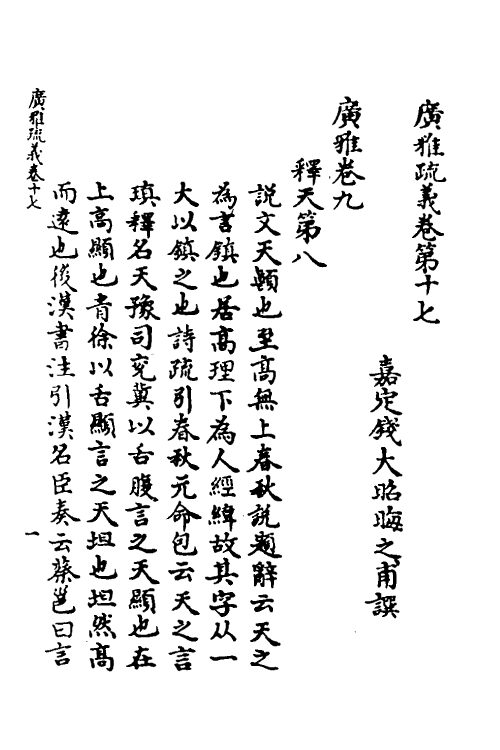 廣雅疏義卷第十七
嘉定錢大昭晦之甫譔
廣雅卷九
釋天第八
説文天顚也至高無上春秋説題辭云天之
為言鎮也居高理下為人經緯故其字从一
大以鎮之也詩疏引春秋元命包云天之言
瑱釋名天豫司兖冀以舌腹言之天顯也在
上高顯也青徐以舌頭言之天坦也坦然高
而遠也後漢書注引漢名臣奏云蔡邕曰言
廣雅疏義卷十七
一